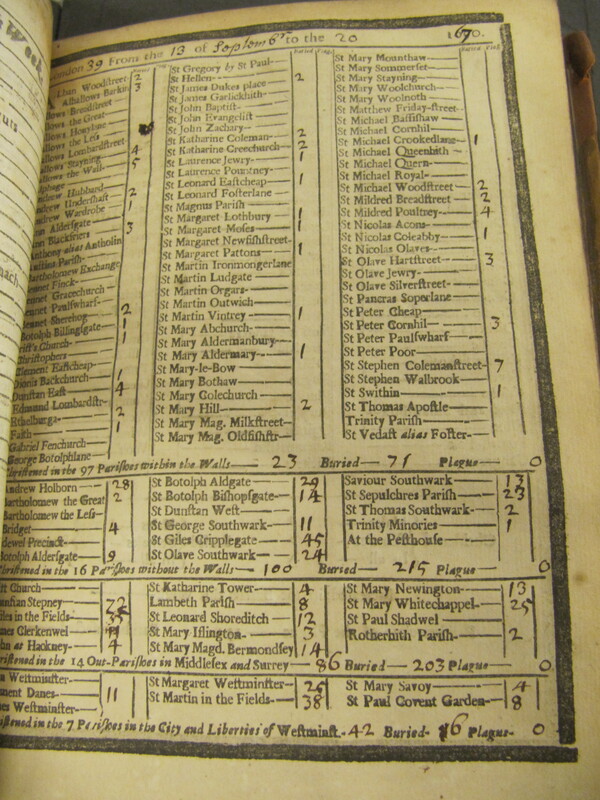 London 39 From the 13 of Septemb^r to the 20 1670.
Buried Plag.
Alban Woodstreet 2
Alhallows Barkin 3
llows Breadstreet
llows the Great
llows Honylane
llows the Less
llows Lombardstreet 4
llows Stayning 5
llows the Wall
lphage
ndrew Hubbard 2
ndrew Undershaft 2
ndrew Wardrobe 1
nn Aldersgate 3
nn Blackfriers
nthony alias Antholin
ustins Parish
artholomew Exchange
ennet Finck
ennet Gracechurch
ennet Paulswharf 2
ennet Sherehog 1
otolph Billingsgate 1
rist's Church
hristophers
lement Eastcheap
Dionis Backchurch 1
Dunstan East 4
Edmund Lombardstr
Ethelburga 2
Faith 1
Gabriel Fenchurch
George Botolphlane
Buried Plag.
St Gregory by St Paul
St Hellen 2
St James Dukes place
St James Garlickhith
St John Baptist
St John Evangelist
St John Zachary
St Katharine Coleman 2
St Katharine Creechurch 2
St Laurence Jewry 1
St Laurence Pountney
St Leonard Eastcheap 1
St Leonard Fosterlane
St Magnus Parish
St Margaret Lothbury 1
St Margaret Moses 1
St Margaret Newfishstreet
St Margaret Pattons 1
St Martin Ironmongerlane
St Martin Ludgate
St Martin Orgars
St Martin Outwich
St Martin Vintrey 1
St Mary Abchurch
St Mary Aldermanbury
St Mary Aldermary 1
St Mary-le-Bow
St Mary Bothaw
St Mary Colechurch
St Mary Hill 2
St Mary Mag. Milkstreet
St Mary Mag. Oldfishstr
Buried Plag.
St Mary Mounthaw
St Mary Sommerset
St Mary Stayning
St Mary Woolchurch
St Mary Woolnoth
St Matthew Friday-street
St Michael Bassishaw
St Michael Cornhil
St Michael Crookedlane 1
St Michael Queenhith
St Michael Quern
St Michael Royal
St Michael Woodstreet 2
St Mildred Breadstreet 2
St Mildred Poultrey 4
St Nicolas Acons
St Nicolas Coleabby 1
St Nicolas Olaves
St Olave Hartstreet 3
St Olave Jewry
St Olave Silverstreet
St Pancras Soperlane
St Peter Cheap
St Peter Cornhil 3
St Peter Paulswharf
St Peter Poor
St Stephen Colemanstreet 7
St Stephen Walbrook
St Swithin 1
St Thomas Apostle
Trinity Parish
St Vedast alias Foster
hristened in the 97 Parishes within the Walls 23 Buried 71 Plague 0
Andrew Holborn 28
Bartholomew the Great 2
Bartholomew the Less
Bridget 4
Bridewel Precinct
Botolph Aldersgate 9
St Botolph Aldgate 29
St Botolph Bishopsgate 14
St Dunstan West
St George Southwark 11
St Giles Cripplegate 45
St Olave Southwark 24
Saviour Southwark 13
St Sepulchres Parish 23
St Thomas Southwark 2
Trinity Minories 1
At the Pesthouse
hristened in the 16 Parishes without the Walls 100 Buried 215 Plague 0
rist Church
Dunstan Stepney
Giles in the Fields
James Clerkenwel
ohn at Hackney 4
St Katharine Tower 4
Lambeth Parish 8
St Leonard Shoreditch 12
St Mary Islington 3
St Mary Magd. Bermondsey 14
St Mary Newington 13
St Mary Whitechappel 25
St Paul Shadwel
Rotherhith Parish 2
ristened in the 14 Out-Parishes in Middlesex and Surrey 86 Buried 203 Plague 0
Westminster
ment Danes 11
mes Westminster
St Margaret Westminster 25
St Martin in the Fields 38
St Mary Savoy 4
St Paul Covent Garden 8
istened in the 7 Parishes in the City and Liberties of Westminst. 42 Buried Plague 0